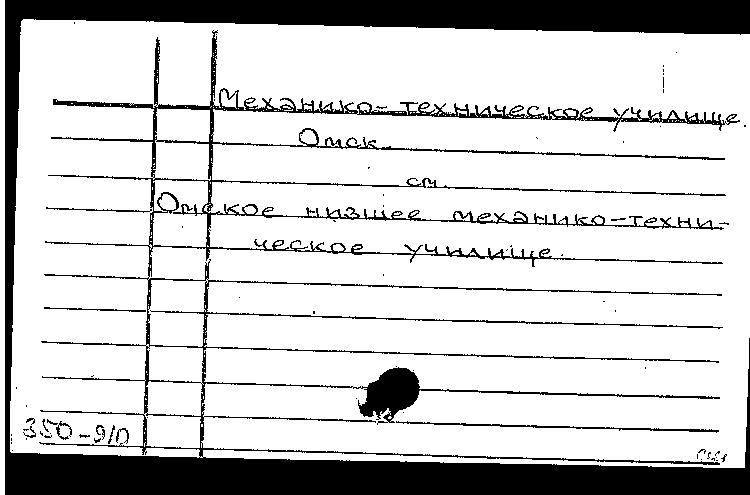 Механико-техническое училище.
Омск.
см.
Омское низшее механико-техни-
ческое училище.
350-910